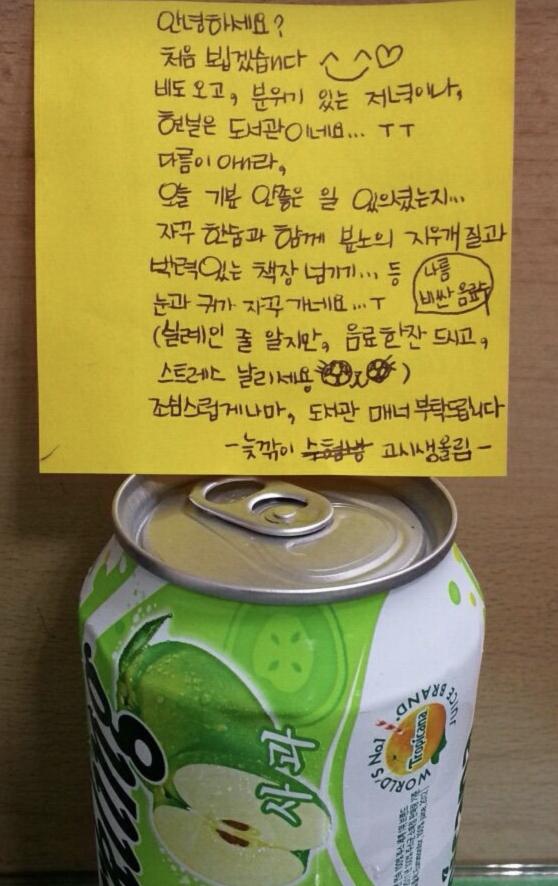 안녕하세요?
처음 뵙겠습니다 ^_^♡
비도 오고, 분위기 있는 저녁이나,
현실은 도서관이네요... ㅜㅜ
다름이 아니라,
오늘 기분 안좋은 일 있으셨는지...
자꾸 한숨과 함께 분노의 지우개 질과
박력있는 책장 넘기기... 등
눈과 귀가 자꾸 가네요...ㅜ
나름
비싼 음료수
(실례인 줄 알지만, 음료한잔 드시고,
스트레스 날리세용)
조심스럽게나마, 도서관 매너 부탁드립니다
-늦깎이 수험생 고시생올림-
사과
WORLD'S No1 JUICE BRAND.
Tropicana